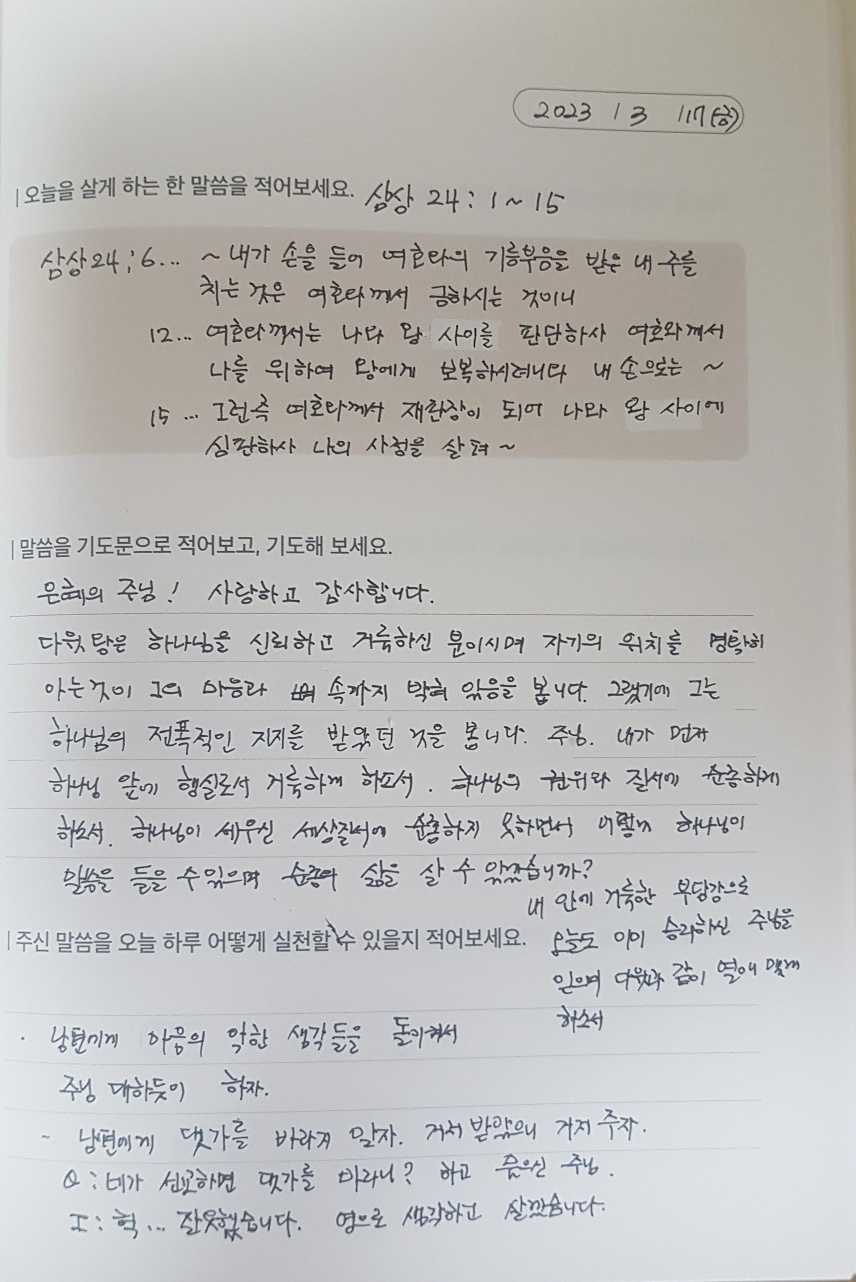 2023 / 3 / 17 (금)
| 오늘을 살게 하는 한 말씀을 적어보세요. 삼상 24 : 1 ~ 15
삼상24 ; 6... ~ 내가 손을 들어 여호와의 기름부음을 받은 내 주를
치는 것은 여호와께서 금하시는 것이니
12... 여호와께서는 나와 왕 사이를 판단하사 여호와께서
나를 위하여 왕에게 보복하시려니와 내 손으로는 ~
15 ... 그런즉 여호와께서 재판장이 되어 나와 왕 사이에
심판하사 나의 사정을 살펴 ~
| 말씀을 기도문으로 적어보고, 기도해 보세요.
은혜의 주님! 사랑하고 감사합니다.
다윗 왕은 하나님을 신뢰하고 거룩하신 분이시며 자기의 위치를 명확히
아는것이 그의 마음과 속까지 박혀 있음을 봅니다. 그랬기에 그는
하나님의 전폭적인 지지를 받았던 것을 봅니다. 주님. 내가 먼저
하나님 앞에 행실로서 거룩하게 하소서. 하나님의 권위와 질서에 순종하게
하소서. 하나님이 세우신 세상질서에 순종하지 못하면서 어떻게 하나님의
말씀을 들을 수 있으며 순종의 삶을 살 수 있겠습니까?
내 안에 거룩한 부담감으로
| 주신 말씀을 오늘 하루 어떻게 실천할 수 있을지 적어보세요.
오늘도 이미 승리하신 주님을
믿으며 다윗과 같이 열매 맺게
하소서
· 남편에게 마음의 악한 생각들을 돌이켜서
주님 대하듯이 하자.
- 남편에게 댓가를 바라지 말자. 거저 받았으니 거저 주자.
Q : 네가 선교하면 댓가를 바라니? 하고 물으신 주님.
I : 헉... 잘못했습니다. 영으로 생각하고 살겠습니다.